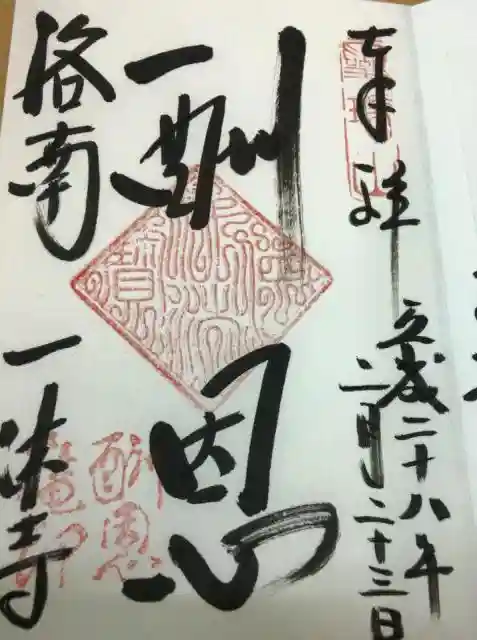 奉拝
平成二十八年
二月二十三日
酬恩
洛南
一休寺
酬恩
庵印